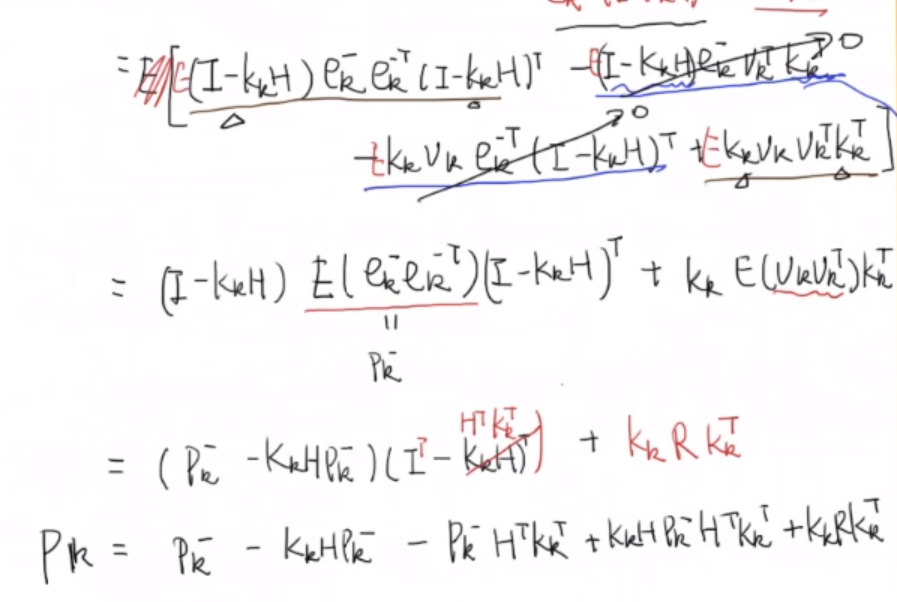 = E[E(I-KₖH) eₖ⁻ eₖ⁻ᵀ (I-KₖH)ᵀ - E(I-KₖH)eₖ⁻ vₖᵀ Kₖᵀ → 0
- E Kₖ vₖ eₖ⁻ᵀ (I-KₖH)ᵀ → 0 + E Kₖ vₖ vₖᵀ Kₖᵀ]
= (I-KₖH) E(eₖ⁻ eₖ⁻ᵀ)(I-KₖH)ᵀ + Kₖ E(vₖvₖᵀ)Kₖᵀ
||
Pₖ⁻
Hᵀ Kₖᵀ)
= (Pₖ⁻ - KₖHPₖ⁻)(Iᵀ - KₖH)ᵀ + Kₖ R Kₖᵀ
Pₖ = Pₖ⁻ - KₖHPₖ⁻ - Pₖ⁻HᵀKₖᵀ + KₖHPₖ⁻HᵀKₖᵀ + KₖRKₖᵀ